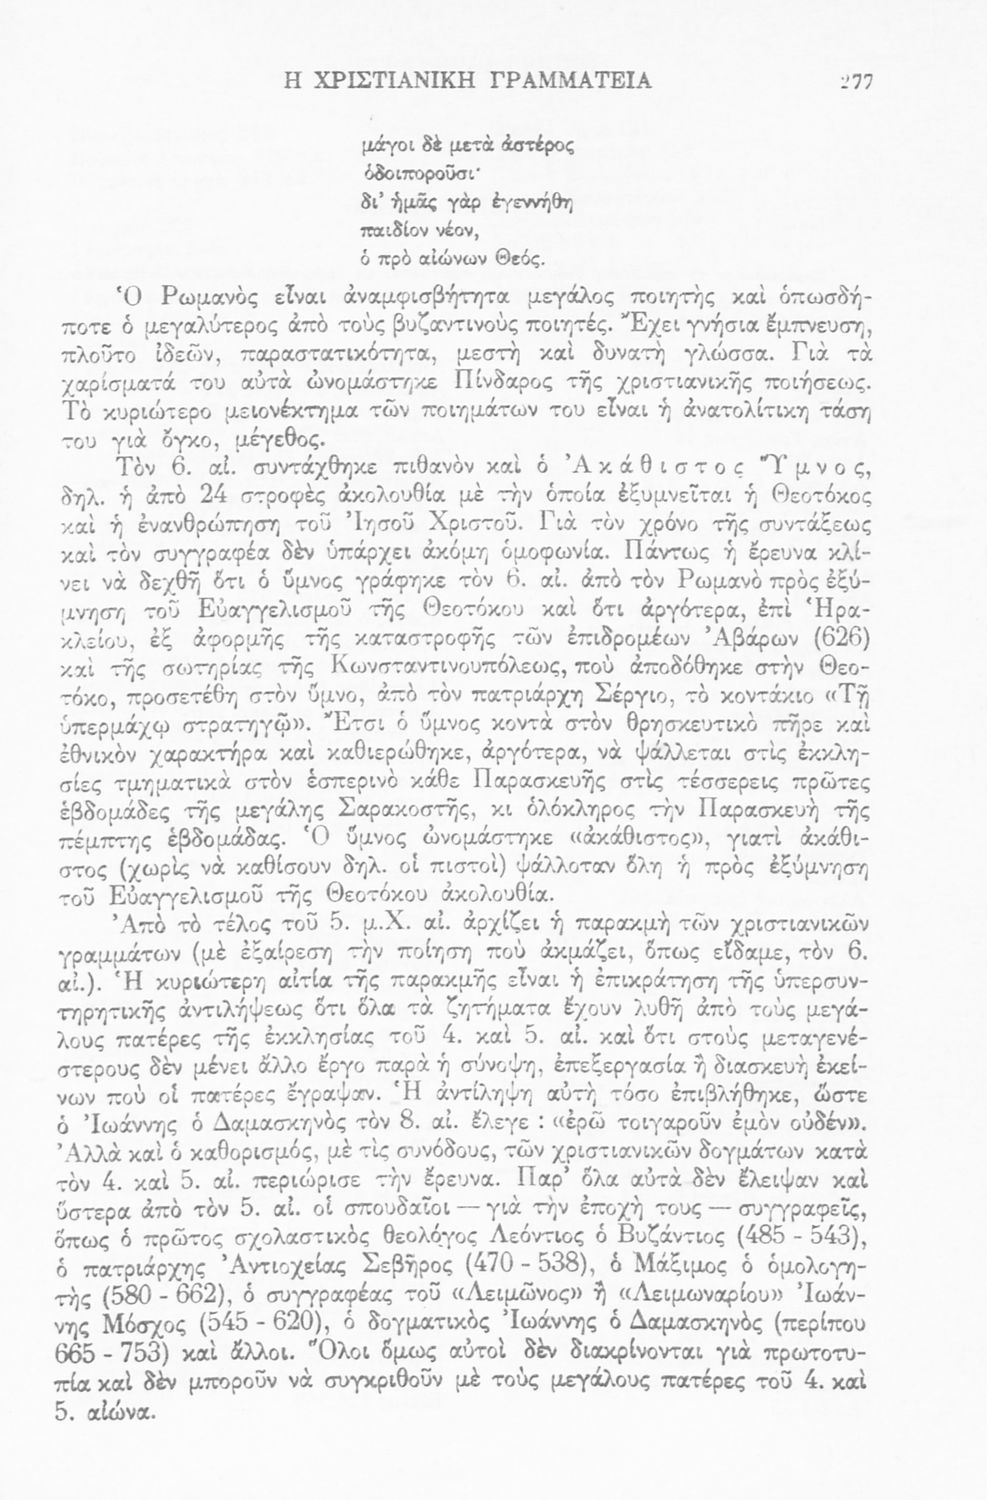 Η ΧΡΙΣΤΙΑΝΙΚΗ ΓΡΑΜΜΑΤΕΙΑ 277
μάγοι δὲ μετὰ ἀστέρος
ὁδοιποροῦσι·
δι’ ἡμᾶς γὰρ ἐγεννήθη
παιδίον νέον,
ὁ πρὸ αἰώνων Θεός.
Ὁ Ρωμανὸς εἶναι ἀναμφισβήτητα μεγάλος ποιητὴς καὶ ὁπωσδή-
ποτε ὁ μεγαλύτερος ἀπὸ τοὺς βυζαντινοὺς ποιητές. Ἔχει γνήσια ἔμπνευση,
πλοῦτο ἰδεῶν, παραστατικότητα, μεστὴ καὶ δυνατὴ γλώσσα. Γιὰ τὰ
χαρίσματά του αὐτὰ ὠνομάστηκε Πίνδαρος τῆς χριστιανικῆς ποιήσεως.
Τὸ κυριώτερο μειονέκτημα τῶν ποιημάτων του εἶναι ἡ ἀνατολίτικη τάση
του γιὰ ὄγκο, μέγεθος.
Τὸν 6. αἰ. συντάχθηκε πιθανὸν καὶ ὁ Ἀκάθιστος Ὕμνος,
δηλ. ἡ ἀπὸ 24 στροφὲς ἀκολουθία μὲ τὴν ὁποία ἐξυμνεῖται ἡ Θεοτόκος
καὶ ἡ ἐνανθρώπηση τοῦ Ἰησοῦ Χριστοῦ. Γιὰ τὸν χρόνο τῆς συντάξεως
καὶ τὸν συγγραφέα δὲν ὑπάρχει ἀκόμη ὁμοφωνία. Πάντως ἡ ἔρευνα κλί-
νει νὰ δεχθῆ ὅτι ὁ ὕμνος γράφηκε τὸν 6. αἰ. ἀπὸ τὸν Ρωμανὸ πρὸς ἐξύ-
μνηση τοῦ Εὐαγγελισμοῦ τῆς Θεοτόκου καὶ ὅτι ἀργότερα, ἐπὶ Ἡρα-
κλείου, ἐξ ἀφορμῆς τῆς καταστροφῆς τῶν ἐπιδρομέων Ἀβάρων (626)
καὶ τῆς σωτηρίας τῆς Κωνσταντινουπόλεως, ποὺ ἀποδόθηκε στὴν Θεο-
τόκο, προσετέθη στὸν ὕμνο, ἀπὸ τὸν πατριάρχη Σέργιο, τὸ κοντάκιο «Τῇ
ὑπερμάχῳ στρατηγῷ». Ἔτσι ὁ ὕμνος κοντὰ στὸν θρησκευτικὸ πῆρε καὶ
ἐθνικὸν χαρακτήρα καὶ καθιερώθηκε, ἀργότερα, νὰ ψάλλεται στὶς ἐκκλη-
σίες τμηματικὰ στὸν ἑσπερινὸ κάθε Παρασκευῆς στὶς τέσσερεις πρῶτες
ἑβδομάδες τῆς μεγάλης Σαρακοστῆς, κι ὁλόκληρος τὴν Παρασκευὴ τῆς
πέμπτης ἑβδομάδας. Ὁ ὕμνος ὠνομάστηκε «ἀκάθιστος», γιατὶ ἀκάθι-
στος (χωρὶς νὰ καθίσουν δηλ. οἱ πιστοὶ) ψάλλοταν ὅλη ἡ πρὸς ἐξύμνηση
τοῦ Εὐαγγελισμοῦ τῆς Θεοτόκου ἀκολουθία.
Ἀπὸ τὸ τέλος τοῦ 5. μ.Χ. αἰ. ἀρχίζει ἡ παρακμὴ τῶν χριστιανικῶν
γραμμάτων (μὲ ἐξαίρεση τὴν ποίηση ποὺ ἀκμάζει, ὅπως εἴδαμε, τὸν 6.
αἰ.). Ἡ κυριώτερη αἰτία τῆς παρακμῆς εἶναι ἡ ἐπικράτηση τῆς ὑπερσυν-
τηρητικῆς ἀντιλήψεως ὅτι ὅλα τὰ ζητήματα ἔχουν λυθῆ ἀπὸ τοὺς μεγά-
λους πατέρες τῆς ἐκκλησίας τοῦ 4. καὶ 5. αἰ. καὶ ὅτι στοὺς μεταγενέ-
στερους δὲν μένει ἄλλο ἔργο παρὰ ἡ σύνοψη, ἐπεξεργασία ἢ διασκευὴ ἐκεί-
νων ποὺ οἱ πατέρες ἔγραψαν. Ἡ ἀντίληψη αὐτὴ τόσο ἐπιβλήθηκε, ὥστε
ὁ Ἰωάννης ὁ Δαμασκηνὸς τὸν 8. αἰ. ἔλεγε : «ἐρῶ τοιγαροῦν ἐμὸν οὐδέν».
Ἀλλὰ καὶ ὁ καθορισμός, μὲ τὶς συνόδους, τῶν χριστιανικῶν δογμάτων κατὰ
τὸν 4. καὶ 5. αἰ. περιώρισε τὴν ἔρευνα. Παρ’ ὅλα αὐτὰ δὲν ἔλειψαν καὶ
ὕστερα ἀπὸ τὸν 5. αἰ. οἱ σπουδαῖοι — γιὰ τὴν ἐποχὴ τους — συγγραφεῖς,
ὅπως ὁ πρῶτος σχολαστικὸς θεολόγος Λεόντιος ὁ Βυζάντιος (485 - 543),
ὁ πατριάρχης Ἀντιοχείας Σεβῆρος (470 - 538), ὁ Μάξιμος ὁ ὁμολογη-
τὴς (580 - 662), ὁ συγγραφέας τοῦ «Λειμῶνος» ἢ «Λειμωναρίου» Ἰωάν-
νης Μόσχος (545 - 620), ὁ δογματικὸς Ἰωάννης ὁ Δαμασκηνὸς (περίπου
665 - 753) καὶ ἄλλοι. Ὅλοι ὅμως αὐτοὶ δὲν διακρίνονται γιὰ πρωτοτυ-
πία καὶ δὲν μποροῦν νὰ συγκριθοῦν μὲ τοὺς μεγάλους πατέρες τοῦ 4. καὶ
5. αἰώνα.